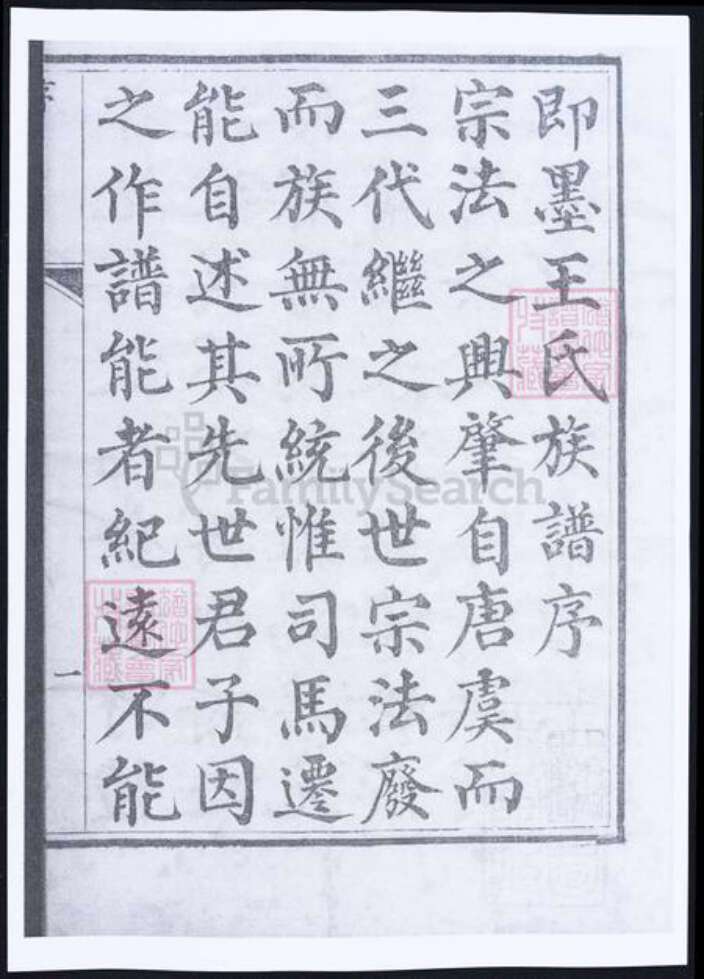 即墨王氏族譜序
宗法之興肇自唐虞而
三代繼之後世宗法廢
而族無所統惟司馬遷
能自述其先世君子因
之作譜能者紀遠不能
一
FamilySearch